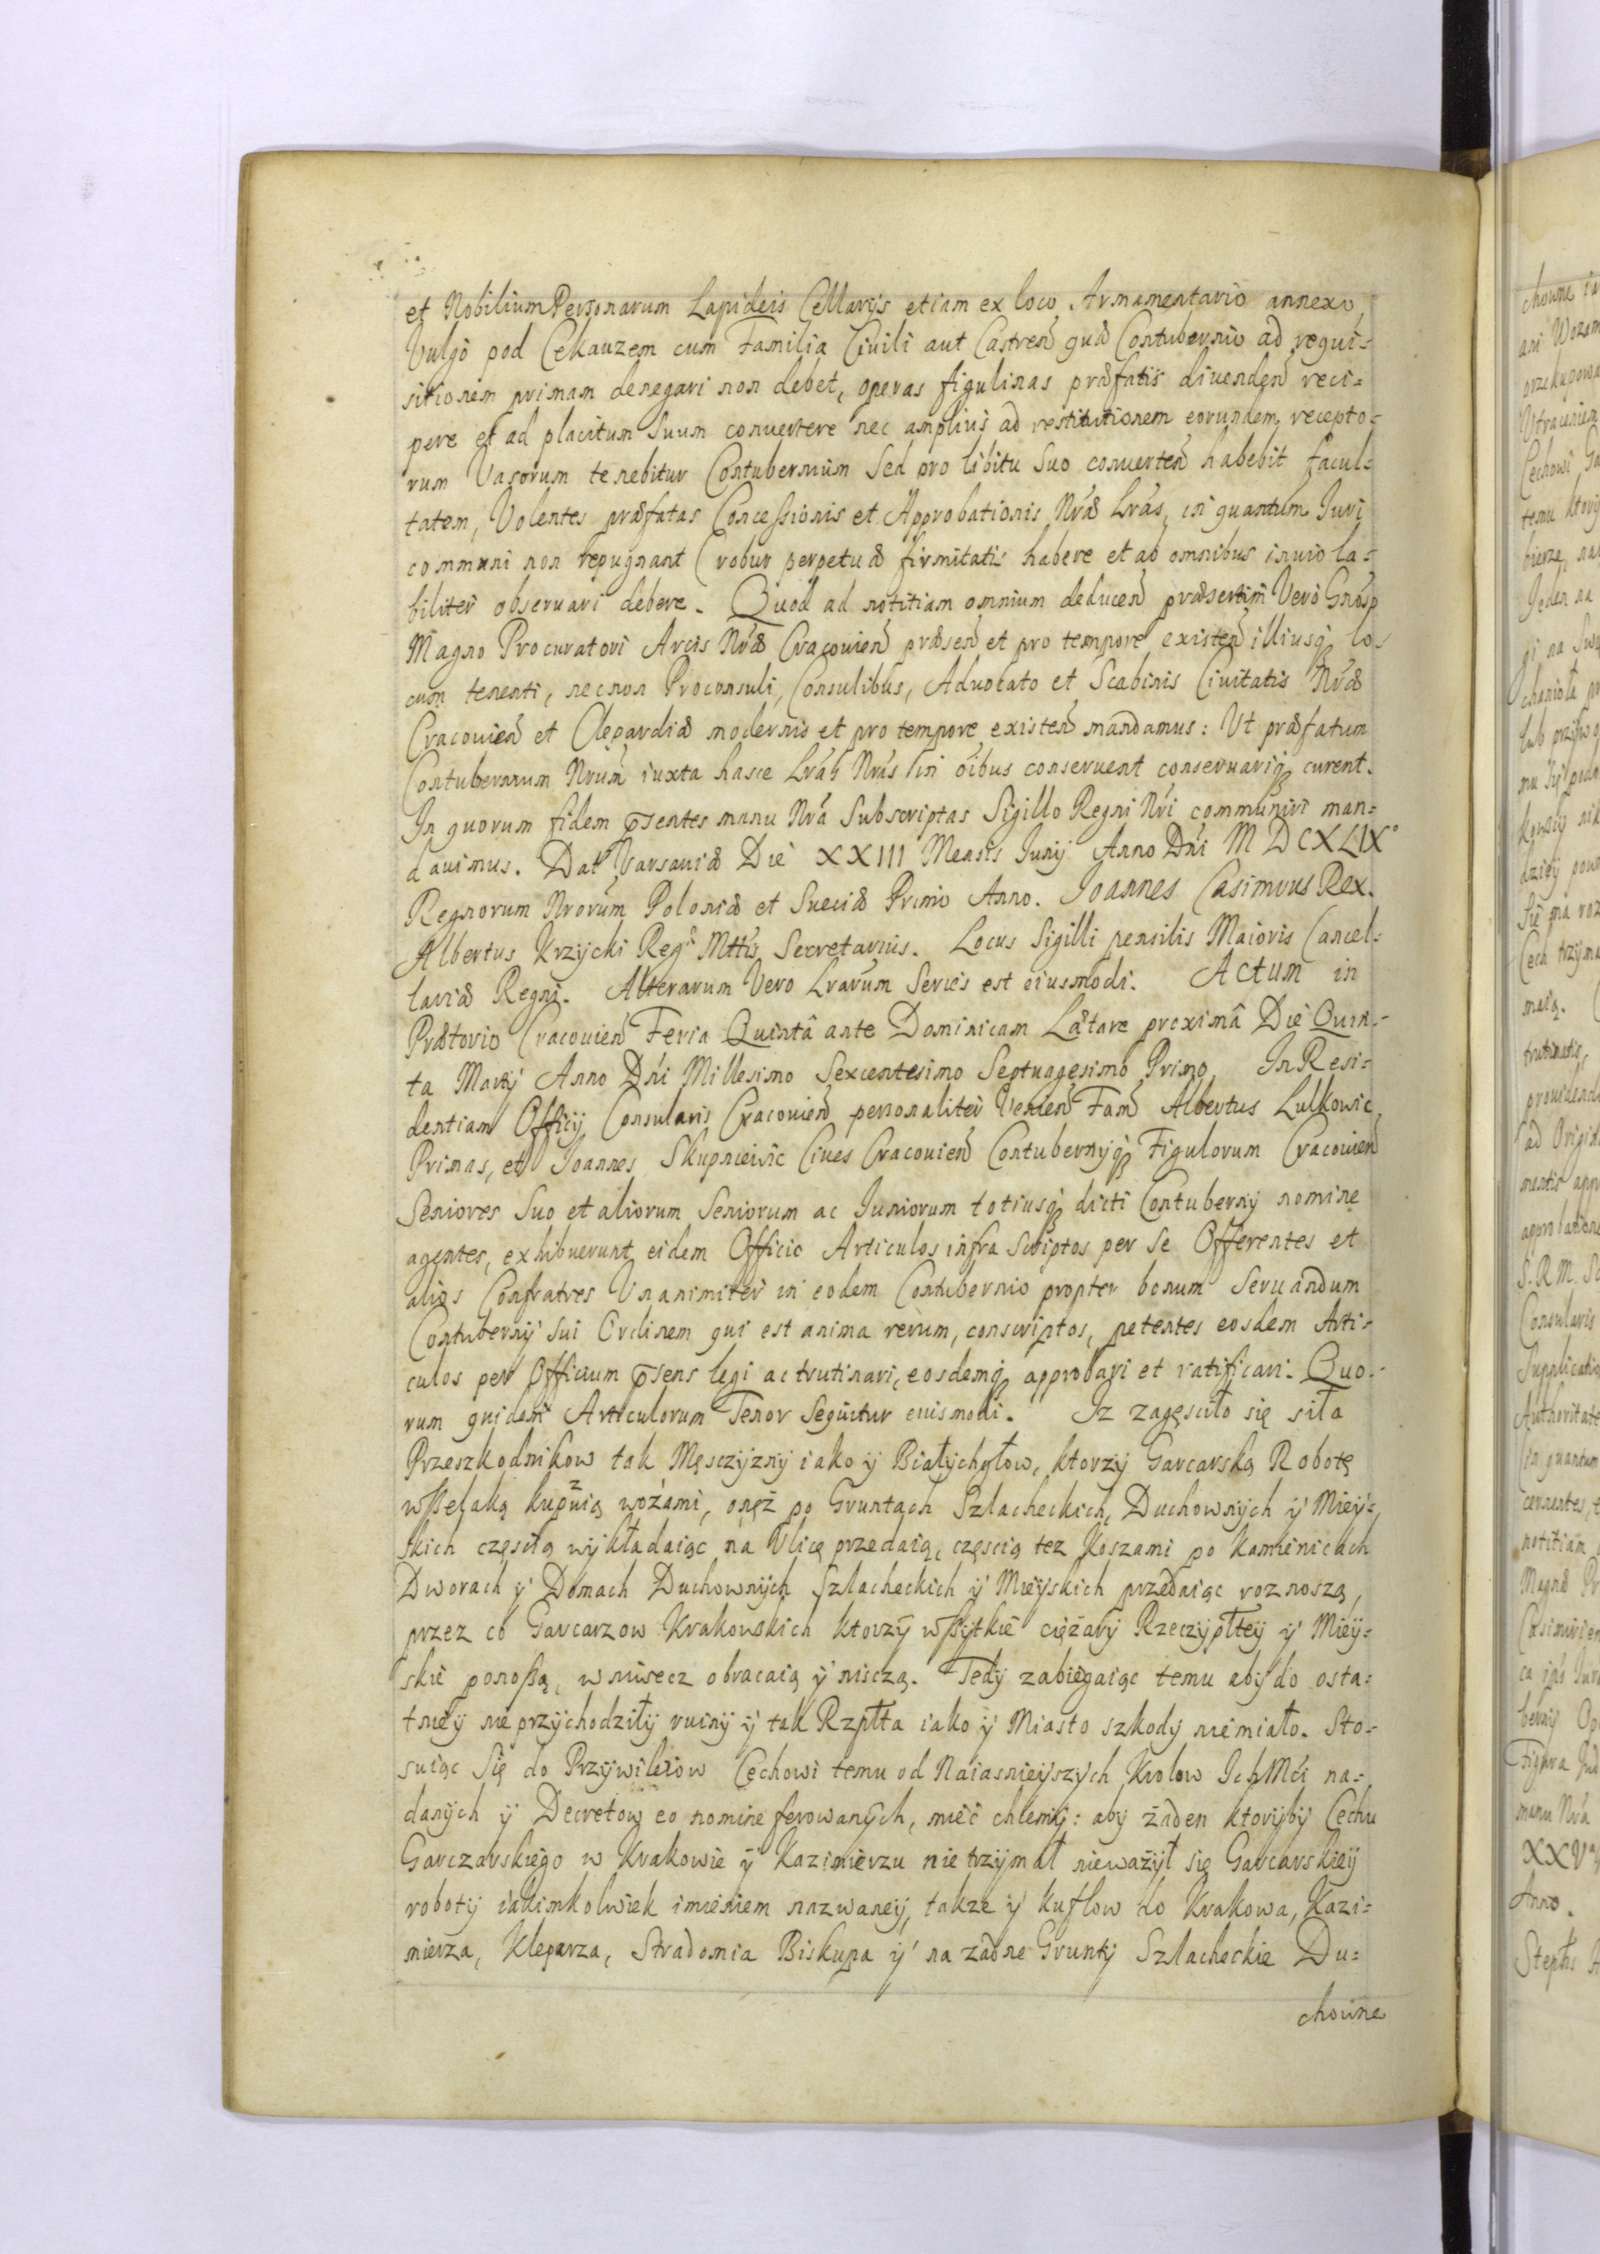 et Nobilium Personarum Lapideis Cellarijs etiam ex loco Armamentario annexo,
Vulgò pod Cekauzem cum Familia Ciuili aut Castren quæ Contubernio ad requi-
sitionem primam denegari non debet, operas figulinas præfatis diuenden reci-
pere et ad placitum Suum conuertere nec amplius ad restitutionem eorundem recepto-
rum Vasorum tenebitur Contubernium Sed pro libitu Suo conuerten habebit facul-
tatem, Volentes præfatas Concessionis et Approbationis Nræ Lras, in quantum Juri
communi non repugnant robur perpetuæ firmitatis habere et ab omnibus inuiola-
biliter obseruari debere. Quod ad notitiam omnium deducen præsertim Verò Gnosp
Magno Procuratori Arcis Nræ Cracouien præsen et pro tempore existen illiusq lo-
cum tenenti, necnon Proconsuli, Consulibus, Aduocato et Scabinis Ciuitatis Nræ
Cracouien et Clepardiæ modernis et pro tempore existen mandamus: Ut præfatum
Contubernium Nrum iuxta hasce Lras Nras in oibus conseruent conseruariq curent.
In quorum fidem psentes manu Nra Subscriptas Sigillo Regni Nri communiri man-
dauimus. Dat Varsauiæ Die XXIII Mensis Junij Anno Dni MDCXLIX°
Regnorum Nrorum Poloniæ et Sueciæ Primo Anno. Joannes Casimirus Rex.
Albertus Krzycki Reg Mttis Secretarius. Locus Sigilli pensilis Maioris Cancel-
lariæ Regni. Alterarum Vero Lrarum Series est eiusmodi. Actum in
Prætorio Cracouien Feria Quintâ ante Dominicam Lætare proximâ Die Quin-
ta Martij Anno Dni Millesimo Sexcentesimo Septuagesimo Primo, In Resi-
dentiam Officij Consularis Cracouien personaliter Venien Fam Albertus Lulkowic
Primas, et Joannes Skupniewic Ciues Cracouien Contubernijq Figulorum Cracouien
Seniores Suo et aliorum Seniorum ac Juniorum totiusq dicti Contubernij nomine
agentes, exhibuerunt eidem Officio Articulos infra Scriptos per Se Offerentes et
alios Confratres Vnanimiter in eodem Contubernio propter bonum Seruandum
Contubernij Sui Ordinem qui est anima rerum, conscriptos, petentes eosdem Arti-
culos per Officium psens legi ac trutinari, eosdemq approbari et ratificari. Quo-
rum quidem Articulorum Tenor Sequitur euismodi. Iz zagęsciło się siła
Przeszkodnikow tak Męsczyzny iako y Białychgłow, ktorzy Garcarską Robotę
wszelaką kupuią wozami, onęż po Gruntach Szlacheckich, Duchownych y Miey-
skich częscią wykładaiąc na Ulicę przedaią, częscią tez Koszami po Kamienicach
Dworach y Domach Duchownych Szlacheckich y Mieyskich przedaiąc roznoszą,
przez co Garcarzow Krakowskich ktorzy wszytkie ciężary Rzeczypltey y Miey-
skie ponoszą, w niwecz obracaią y niszczą. Tedy zabiegaiąc temu aby do osta-
tniey nie przychodziły ruiny y tak Rzplta iako y Miasto szkody nie miało. Sto-
suiąc Się do Przywileiow Cechowi temu od Naiasnieyszych Krolow IchMci na-
danych y Decretow eo nomine ferowanych, mieć chcemy: aby żaden ktoryby Cechu
Garczarskiego w Krakowie y Kazimierzu nie trzymał nieważył się Garcarskiey
roboty iakimkolwiek imieniem nazwaney, takze y kuflow do Krakowa, Kazi-
mierza, Kleparza, Stradomia Biskupa y na żadne Grunty Szlacheckie Du-
chowne